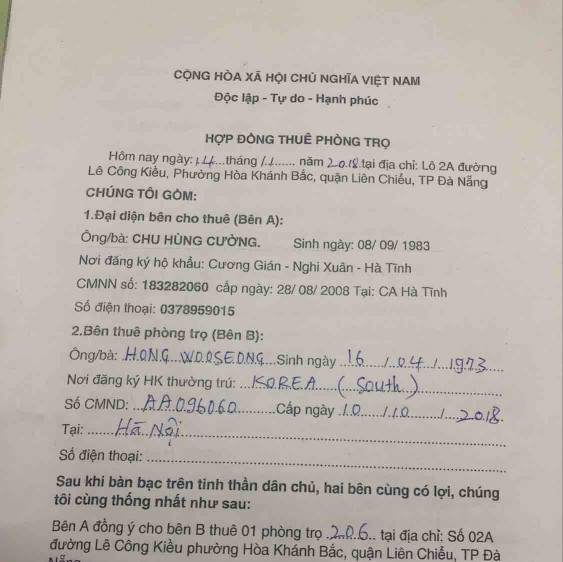 CỘNG HÒA XÃ HỘI CHỦ NGHĨA VIỆT NAM
Độc lập - Tự do - Hạnh phúc
HỢP ĐỒNG THUÊ PHÒNG TRỌ
Hôm nay ngày: 14...tháng 11...... năm 2018 tại địa chỉ: Lô 2A đường
Lê Công Kiều, Phường Hòa Khánh Bắc, quận Liên Chiểu, TP Đà Nẵng
CHÚNG TÔI GỒM:
1.Đại diện bên cho thuê (Bên A):
Ông/bà: CHU HÙNG CƯỜNG. Sinh ngày: 08/ 09/ 1983
Nơi đăng ký hộ khẩu: Cương Gián - Nghi Xuân - Hà Tĩnh
CMNN số: 183282060 cấp ngày: 28/ 08/ 2008 Tại: CA Hà Tĩnh
Số điện thoại: 0378959015
2.Bên thuê phòng trọ (Bên B):
Ông/bà: HONG WOOSEONG Sinh ngày 16 / 04 / 1973
Nơi đăng ký HK thường trú: KOREA (South)
Số CMND: AA096060 Cấp ngày 10 / 10 / 2018.
Tại: Hà Nội
Số điện thoại:
Sau khi bàn bạc trên tinh thần dân chủ, hai bên cùng có lợi, chúng
tôi cùng thống nhất như sau:
Bên A đồng ý cho bên B thuê 01 phòng trọ 206 tại địa chỉ: Số 02A
đường Lê Công Kiều phường Hòa Khánh Bắc, quận Liên Chiểu, TP Đà